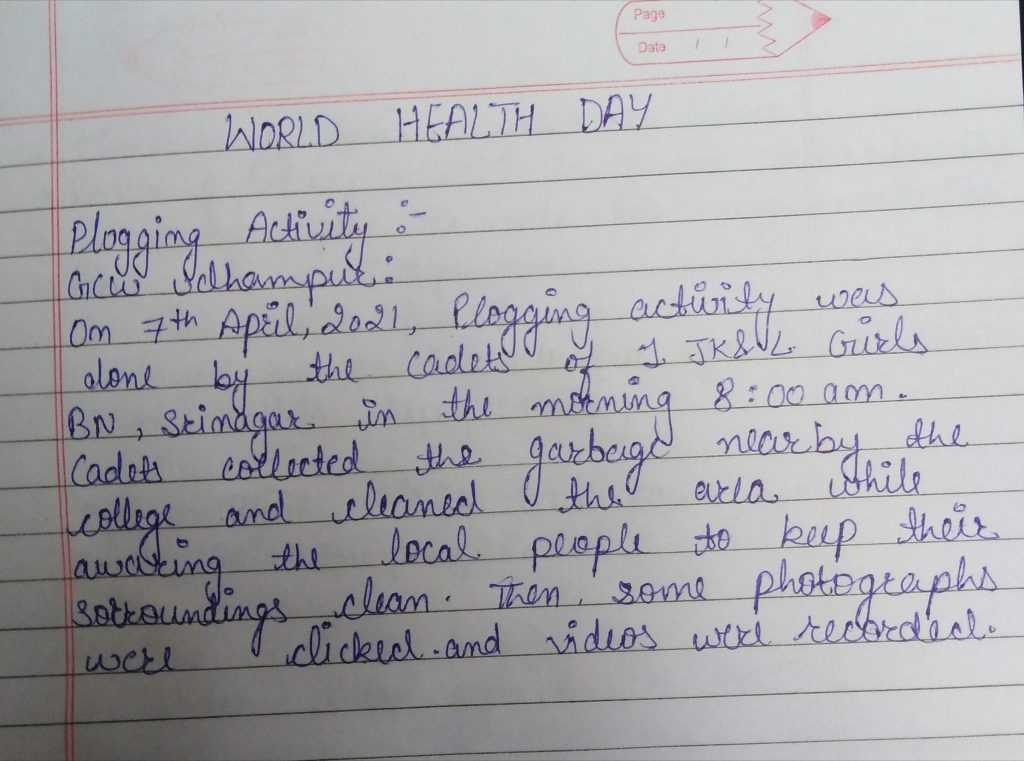 Page
Date / /
WORLD HEALTH DAY
Plogging Activity :-
GCW Udhampur:
On 7th April, 2021, Plogging activity was
done by the cadets of 1 JK&L Girls
BN, Srinagar in the morning 8:00 am.
Cadets collected the garbage nearby the
college and cleaned the area while
awaring the local people to keep their
sorroundings clean. Then, some photographs
were clicked and videos were recorded.